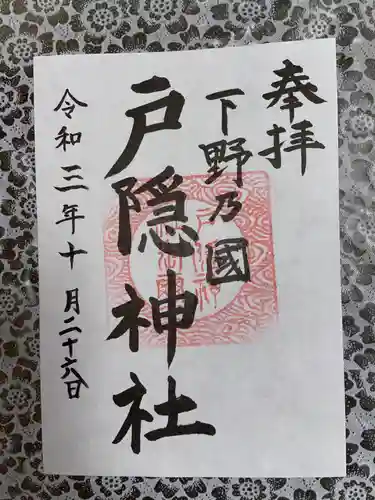 奉拝
下野乃國
戸隠神社
令和三年十月二十六日